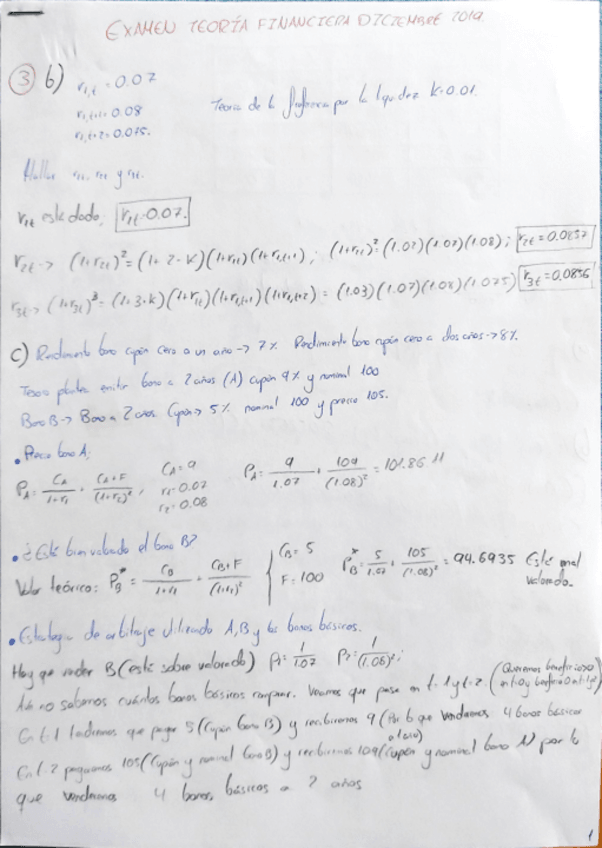 EXAMEN TEORÍA FINANCIERA DICIEMBRE 2019.
③ b) r₁,t = 0.07
r₁,t+1 = 0.08
r₁,t+2 = 0.075.
Teoría de la Preferencia por la liquidez K=0.01.
Hallar r₁t, y
r₁t está dado, r₁t=0.07.
r₂t → (1+r₂t)² = (1+2·K)(1+r₁t)(1+r₁,t+1); (1+r₂t)² = (1.02)(1.07)(1.08); r₂t=0.0857
r₃t → (1+r₃t)³ = (1+3·K)(1+r₁t)(1+r₁,t+1)(1+r₁,t+2) = (1.03)(1.07)(1.08)(1.075) r₃t=0.0856
c) Rendimiento bono cupón cero a un año → 7% Rendimiento bono cupón cero a dos años → 8%.
Tesoro plantea emitir bono a 2 años (A) cupón 9% y nominal 100
Bono B → Bono a 2 años Cupón → 5% nominal 100 y precio 105.
• Precio bono A:
P_A = C_A/(1+r₁) + (C_A+F)/(1+r₂)², C_A=9 r₁=0.07 r₂=0.08 P_A = 9/1.07 + 109/(1.08)² = 101.86 11
• ¿Está bien valorado el bono B?
Valor teórico: P_B* = C_B/(1+r₁) + (C_B+F)/(1+r₂)² { C_B = 5 F = 100 P_B* = 5/1.07 + 105/(1.08)² = 94.6935 Está mal valorado.
• Estrategia de arbitraje utilizando A, B y los bonos básicos.
Hay que vender B (está sobre valorado) P₁ = 1/1.07 P₂ = 1/(1.08)²;
Aún no sabemos cuántos bonos básicos comprar. Veamos que pasa en t=1 y t=2. (Queremos beneficio>0 en t=0 y beneficio 0 en t=1 y 2)
En t=1 tendremos que pagar 5 (Cupón bono B) y recibiremos 9 (Por lo que venderemos 4 bonos básicos a 1 año)
En t=2 pagaremos 105 (Cupón y nominal bono B) y recibiremos 109 (cupón y nominal bono A) por lo
que venderemos 4 bonos básicos a 2 años
1